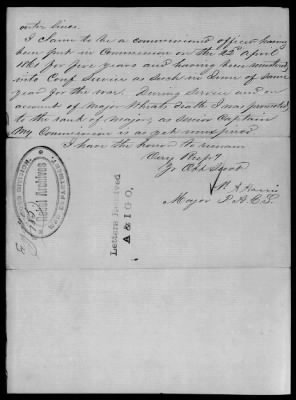 outer lines.
I claim to be a commissioned officer having
been put in Commission on the 22d April
1861 for five years and having been mustered
into Conf Service as such in June of same
year for the war. During Service and on
account of Major death I was promoted
to the rank of Major, as Senior Captain
My Commission is as yet unexpired
I have the honor to remain
Very Resp'y
Yr Obt Servt
Harris
Major P.A.C.S.
Letters Received
A & I G O,